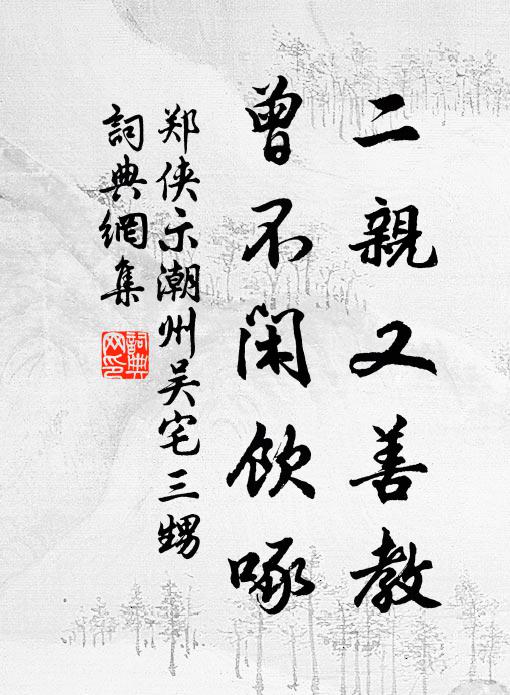 二親又善教
曾不閑飲啄
郑侠示潮州吴宅三甥
詞典網集
詞典网印